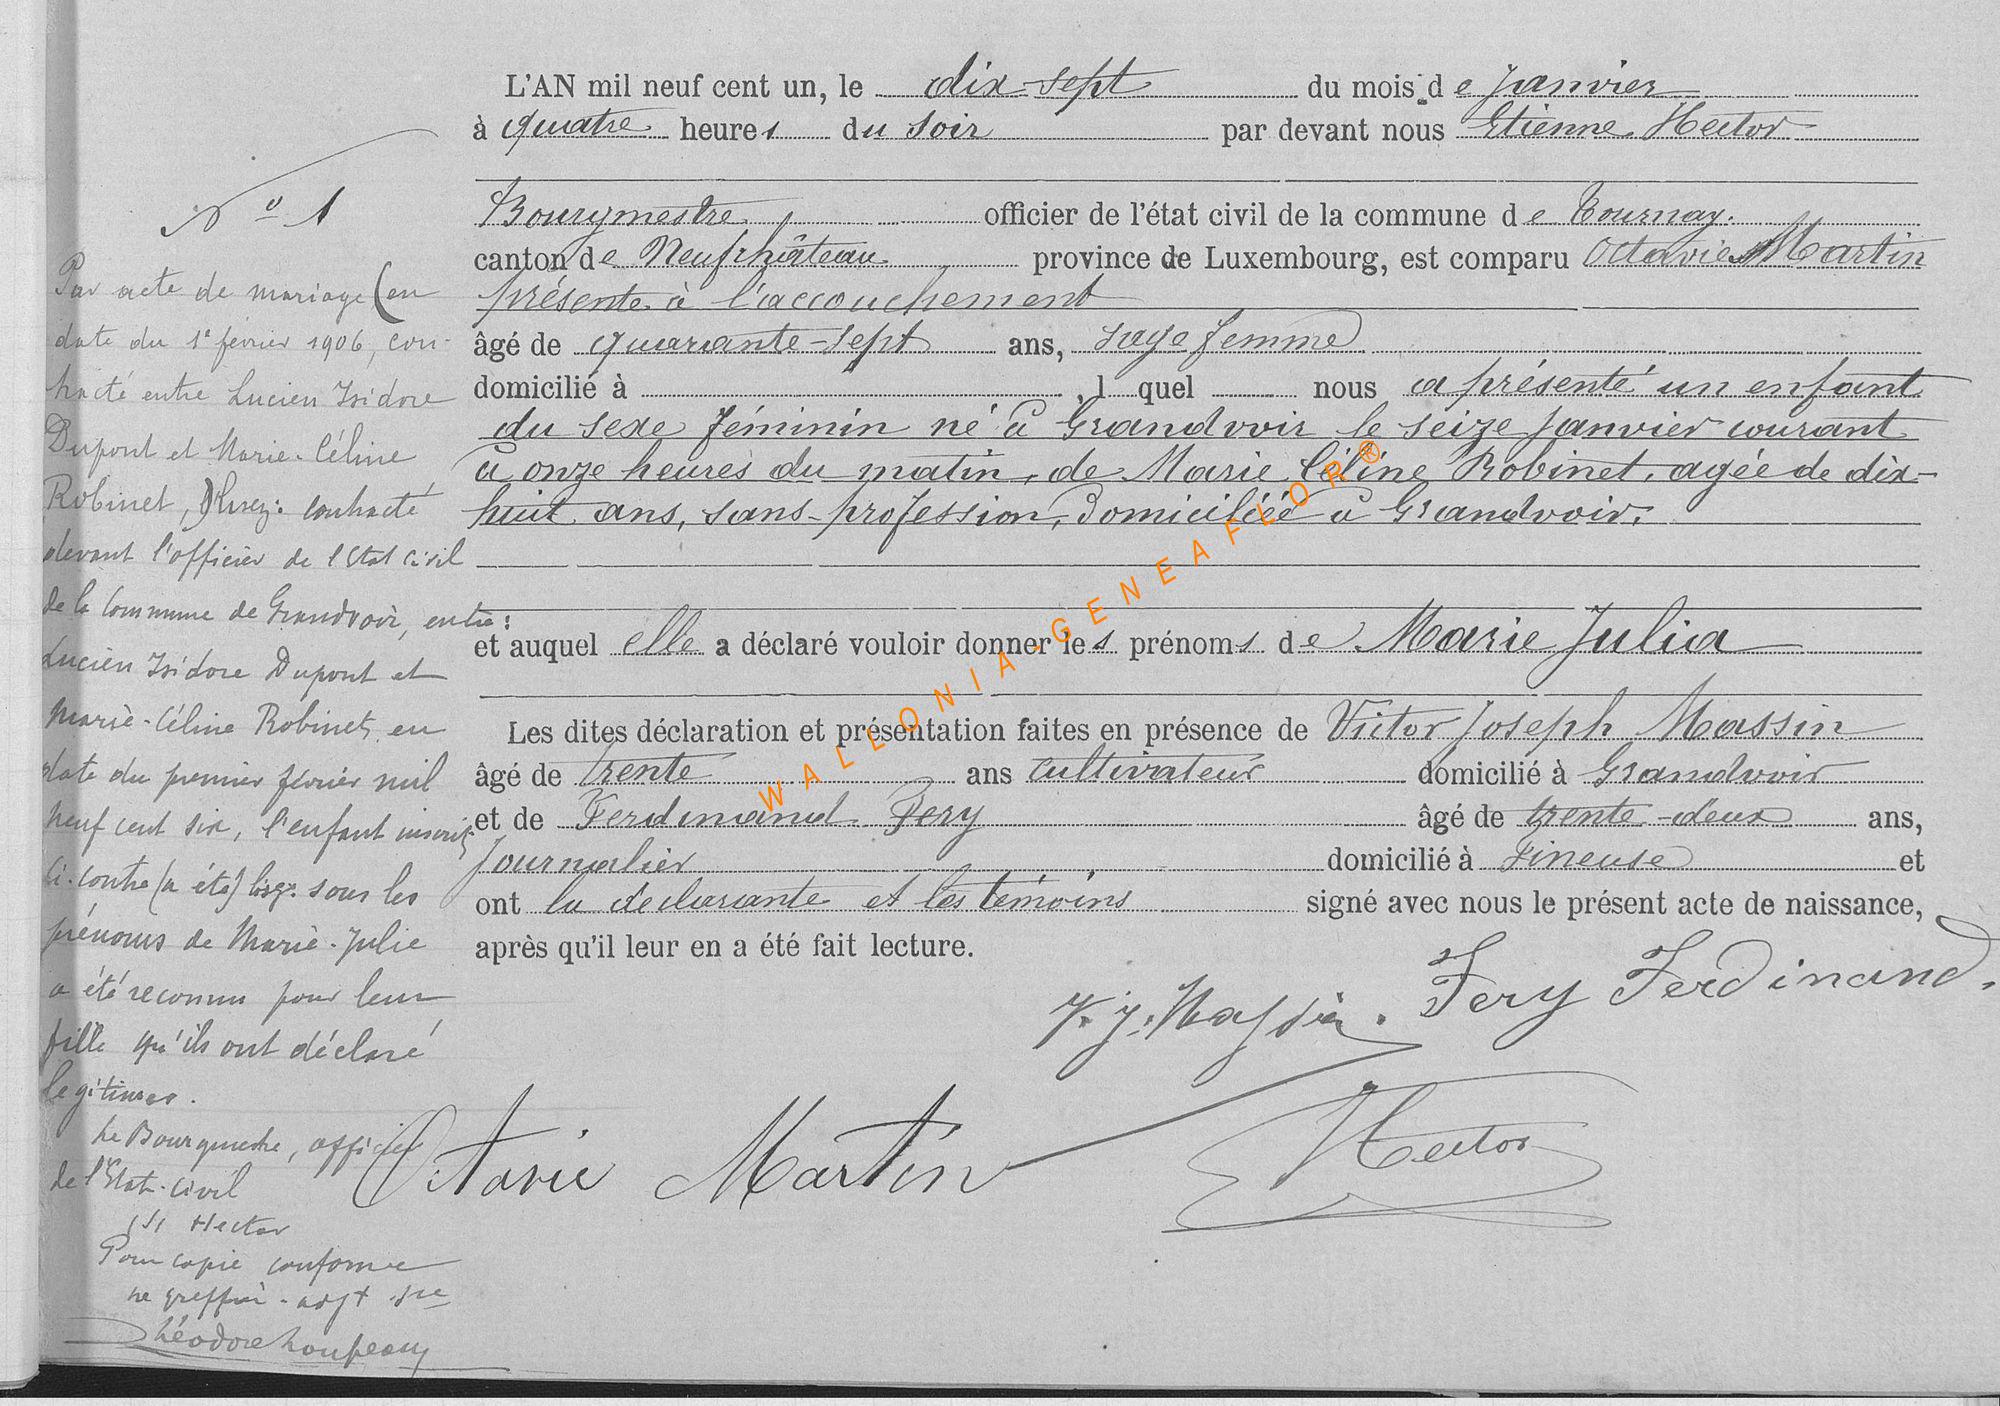 L'AN mil neuf cent un, le dix-sept du mois de Janvier
à quatre heures du soir par devant nous Etienne Hector
Bourgmestre officier de l'état civil de la commune de Tournay.
canton de Neufchâteau province de Luxembourg, est comparu Octavie Martin
présente à l'accouchement
âgé de quarante-sept ans, sage femme
domicilié à , l quel nous a présenté un enfant
du sexe féminin né à Grandvoir le seize Janvier courant
à onze heures du matin, de Marie Céline Robinet, agée de dix-
huit ans, sans-profession, Domiciliée à Grandvoir.
et auquel elle a déclaré vouloir donner les prénoms de Marie Julia
Les dites déclaration et présentation faites en présence de Victor Joseph Massin
âgé de trente ans cultivateur domicilié à Grandvoir
et de Ferdinand Fery âgé de trente-deux ans,
Journalier domicilié à Fineuse et
ont la déclarante et les témoins signé avec nous le présent acte de naissance,
après qu'il leur en a été fait lecture.
V. J. Massin. Fery Ferdinand.
Octavie Martin
Hector
N° 1
Par acte de mariage (en
date du 1r février 1906, con-
tracté entre Lucien Isidore
Dupont et Marie-Céline
Robinet,) lisez: contracté
devant l'officier de l'Etat civil
de la Commune de Grandvoir, entre:
Lucien Isidore Dupont et
Marie-Céline Robinet, en
date du premier février mil
neuf cent six, l'enfant inscrit
ci-contre (a été) lisez: sous les
prénoms de Marie-Julie
a été reconnu pour leur
fille qu'ils ont déclaré
légitimer.
Le Bourgmestre, officier
de l'Etat-Civil
(s) Hector
Pour copie conforme
Le greffier-adjt
Théodore
WALLONIA-GENEAFLOR®